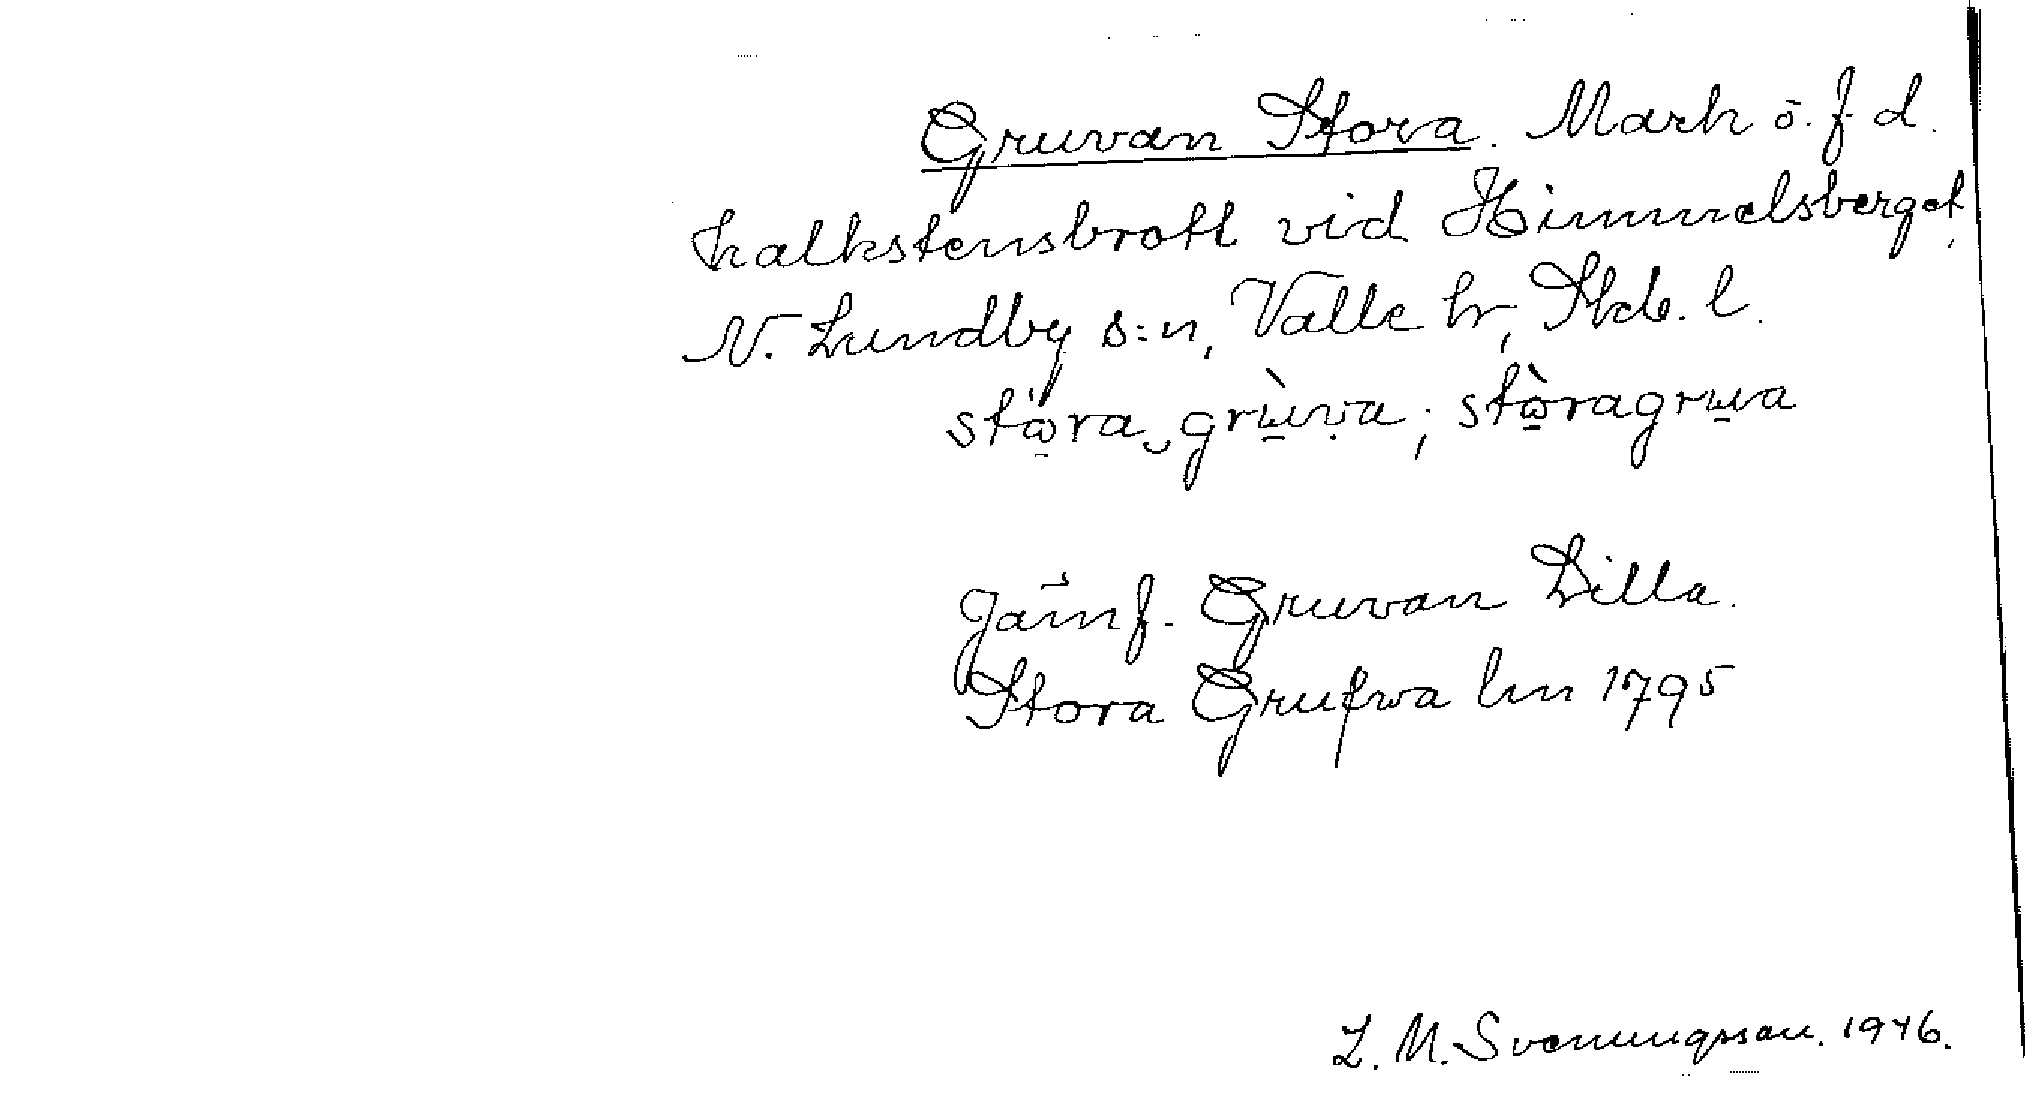 Gruvan Stora. Mark o. f. d.
kalkstensbrott vid Himmelsberget,
N. Lundby s:n, Valle hr, Skb. l.
stω̄ra‿grùva; stὼragruva
Jämf. Gruvan Lilla.
Stora Grufwa lm 1795
L. M. Svenungsson. 1946.